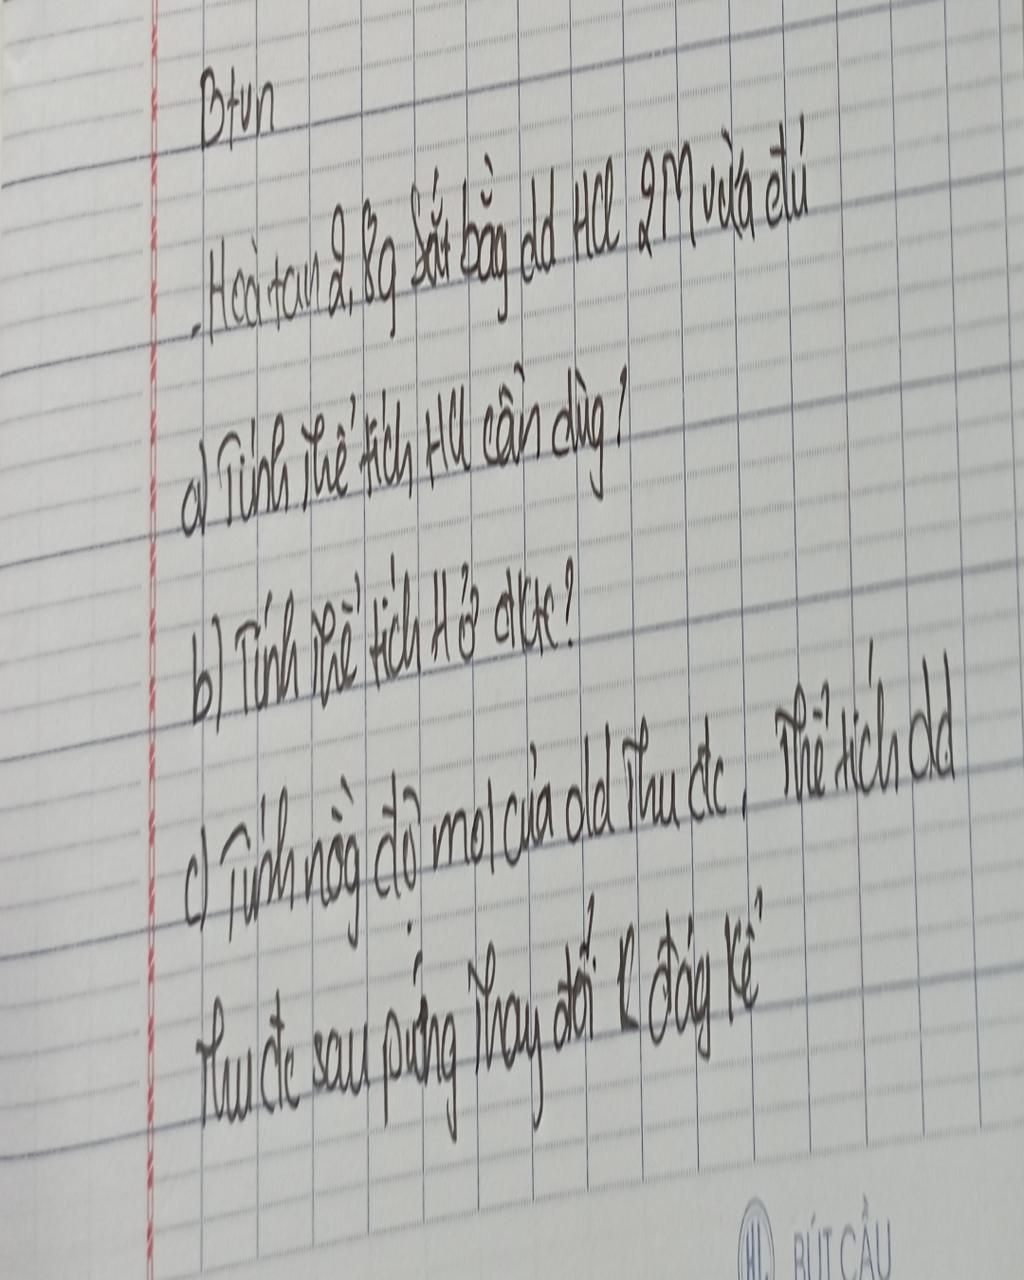 Btvn
- Hoà tan 2,8g Sắt bằg dd HCl 2M vừa đủ
a) Tính thể tích HCl cần dùg?
b) Tính thể tích H ở đktc?
c) Tính nồg độ mol của dd thu đc. Thể tích dd
thu đc sau pứng thay đổi k đág kể
HL BÚT CẦU